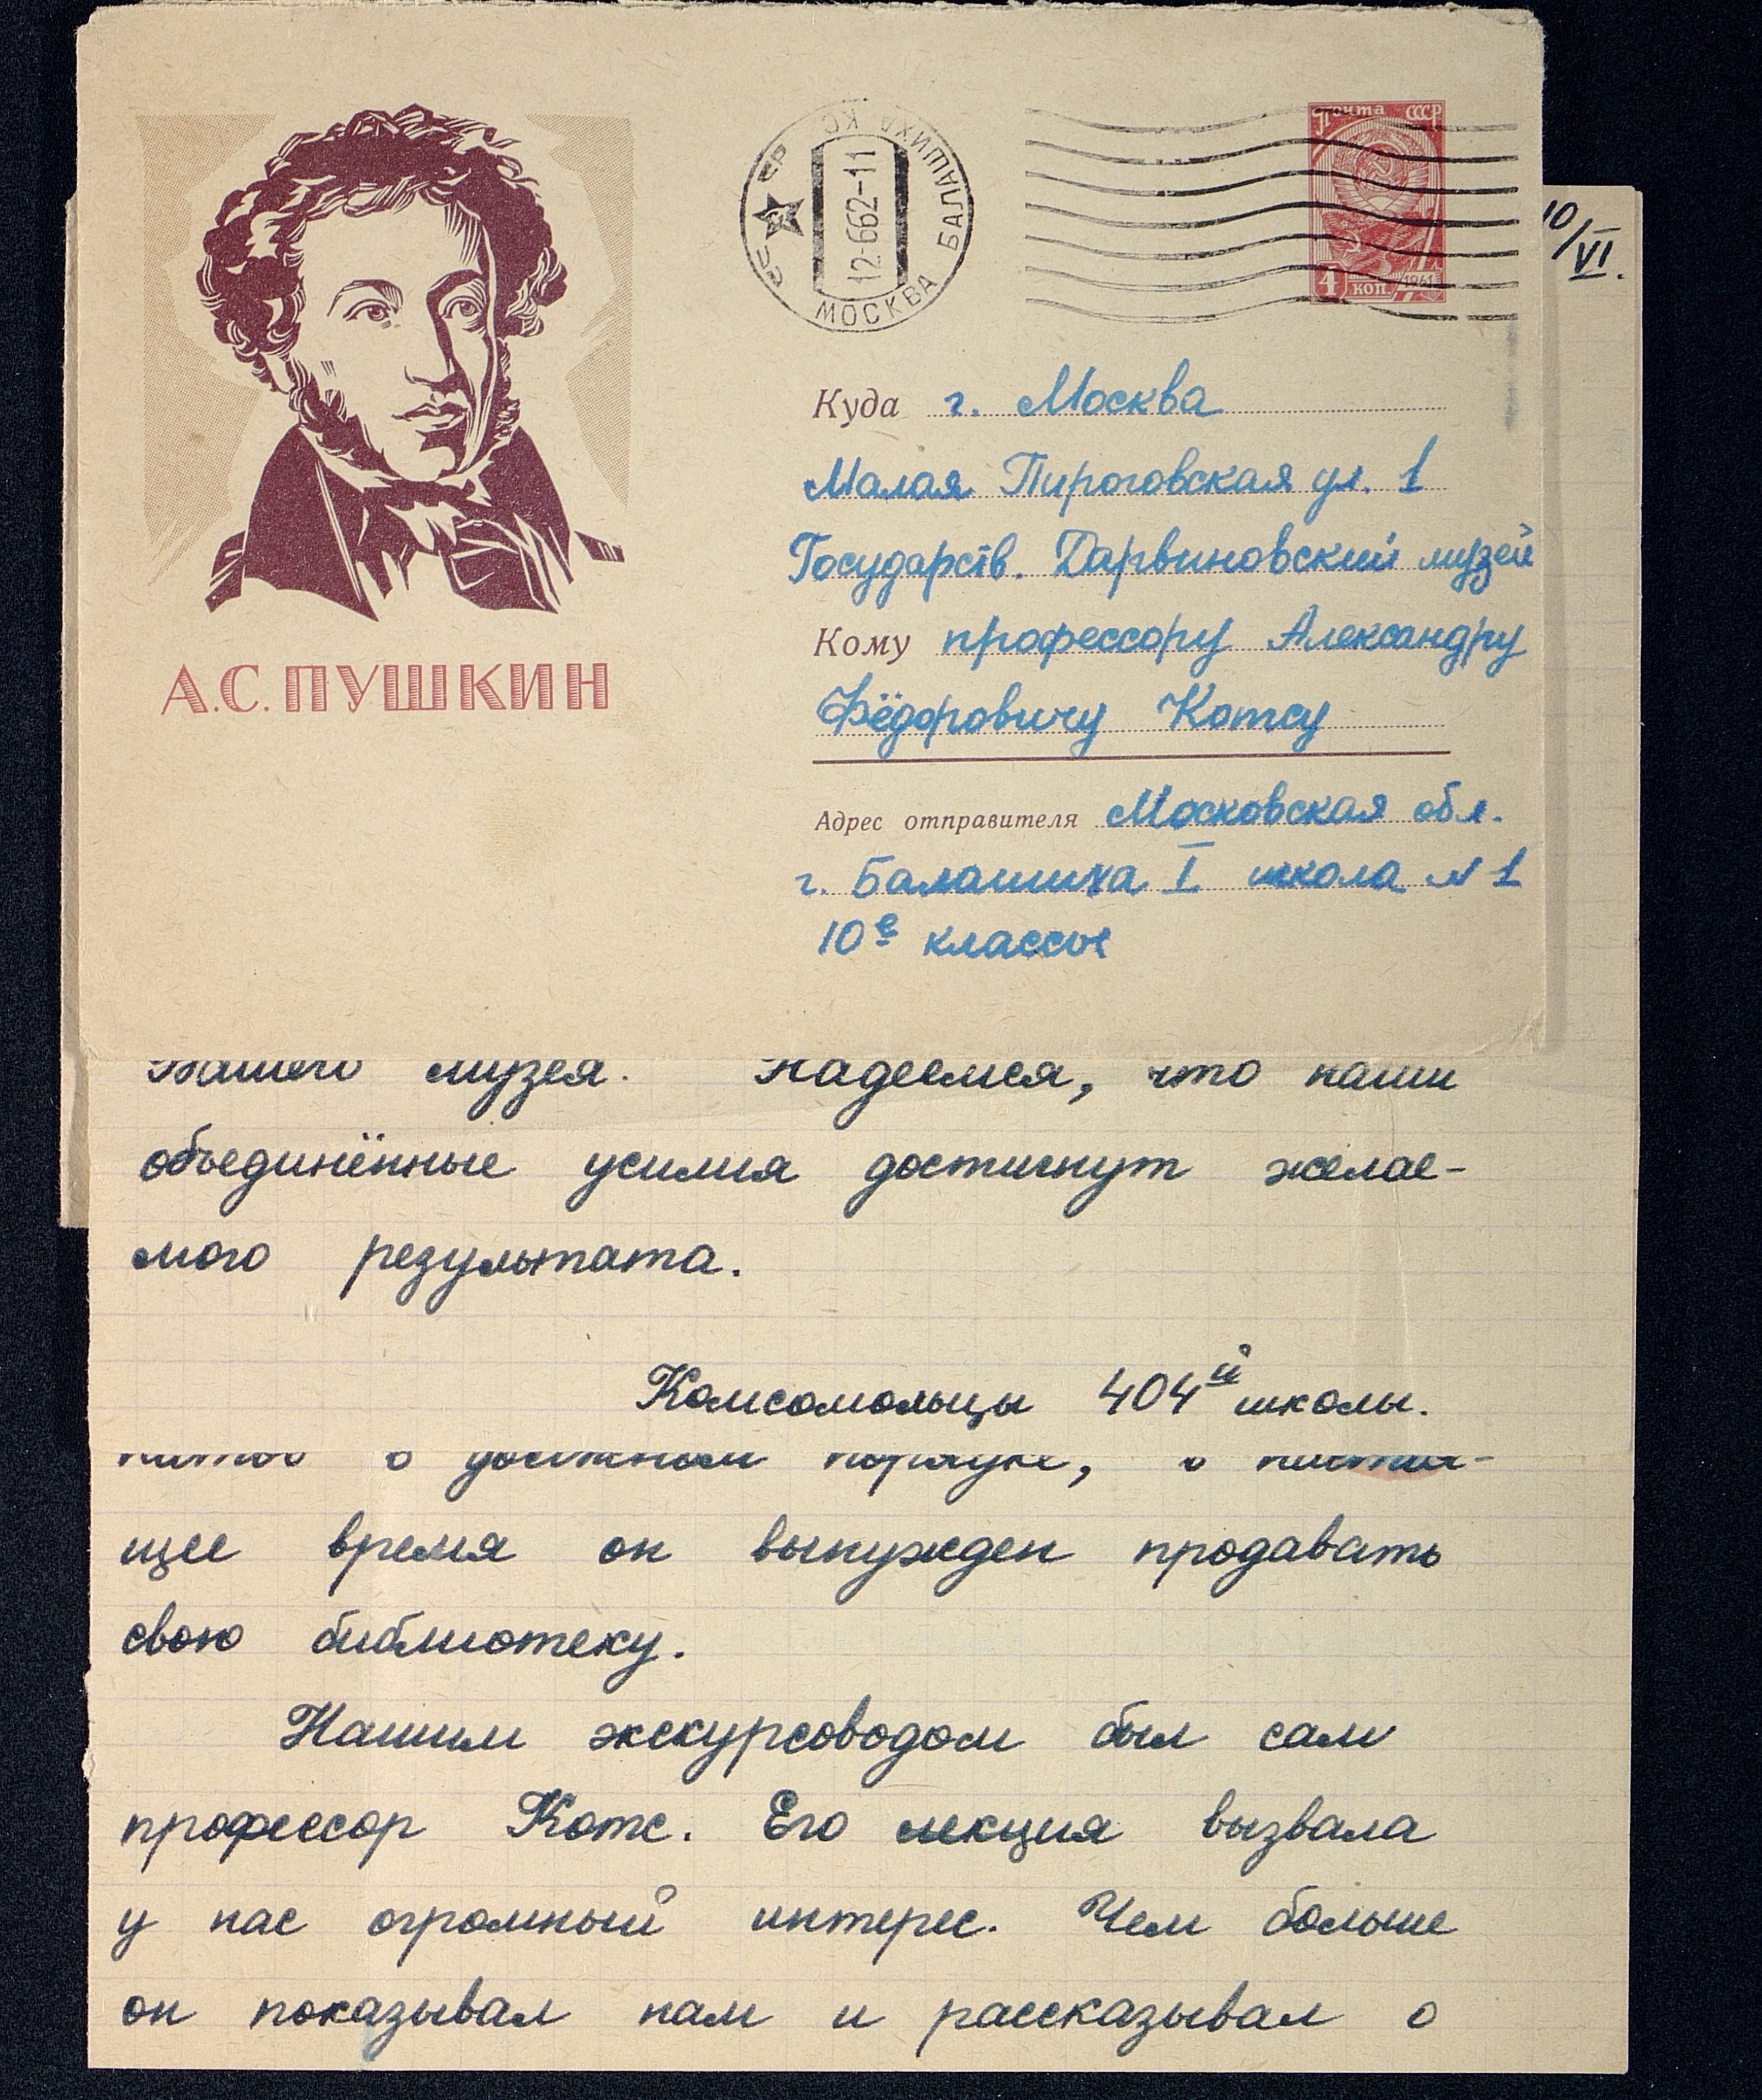 А.С. ПУШКИН
СССР
МОСКВА БАЛАШИХА
12-662-11
Почта СССР
4 коп. 1961
10/VI.
Куда г. Москва
Малая Пироговская ул. 1
Государств. Дарвиновский музей
Кому профессору Александру
Фёдоровичу Котсу
Адрес отправителя Московская обл.
г. Балашиха I школа N 1
10е классы
Вашего музея. Надеемся, что наши
объединённые усилия достигнут желае-
мого результата.
Комсомольцы 404й школы.
в должном порядке, в настоя-
щее время он вынужден продавать
свою библиотеку.
Нашим экскурсоводом был сам
профессор Котс. Его лекция вызвала
у нас огромный интерес. Чем больше
он показывал нам и рассказывал о